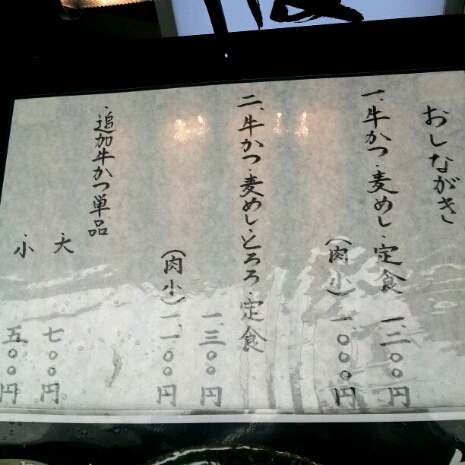 おしながき
一、牛かつ・麦めし・定食
一、二〇〇円
（肉小）一、〇〇〇円
二、牛かつ・麦めし・とろろ・定食
一、三〇〇円
（肉小）一、一〇〇円
・追加牛かつ単品
・大 七〇〇円
・小 五〇〇円